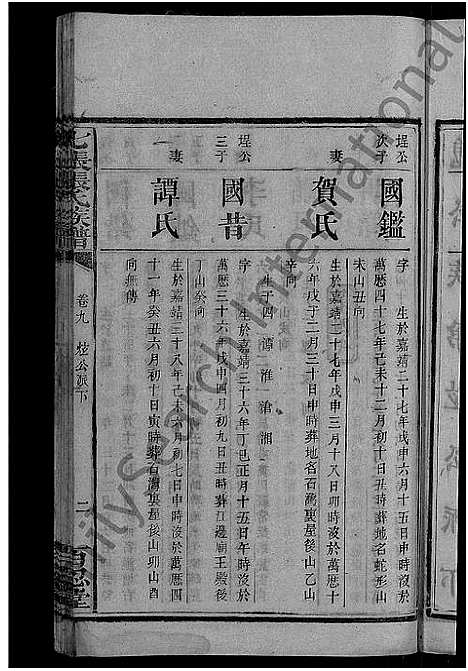 埕公
次子
國鑑
字 生於嘉靖二十七年戊申六月十五日申時沒於
萬歷四十七年己未十二月初十日丑時葬地名蛇形山
未山丑向
妻
賀氏
生於嘉靖二十七年戊申三月十八日卯時沒於萬歷十
六年戊子二月三十日申時葬地名百灣裏屋後山乙山
辛向
生子四 溥 淮 滄 湘
埕公
三子
國昔
字 生於嘉靖三十六年丁巳正月十五日午時沒於
萬歷三十六年戊申四月初九日丑時葬江邊廟王殿後
丁山癸向
妻
譚氏
生於嘉靖三十八年己未六月初七日申時沒於萬歷四
十一年癸丑六月初十日寅時葬百灣裏屋後山卯山酉
向無傳
七張張氏族譜
卷九
公派下
二
百忍堂